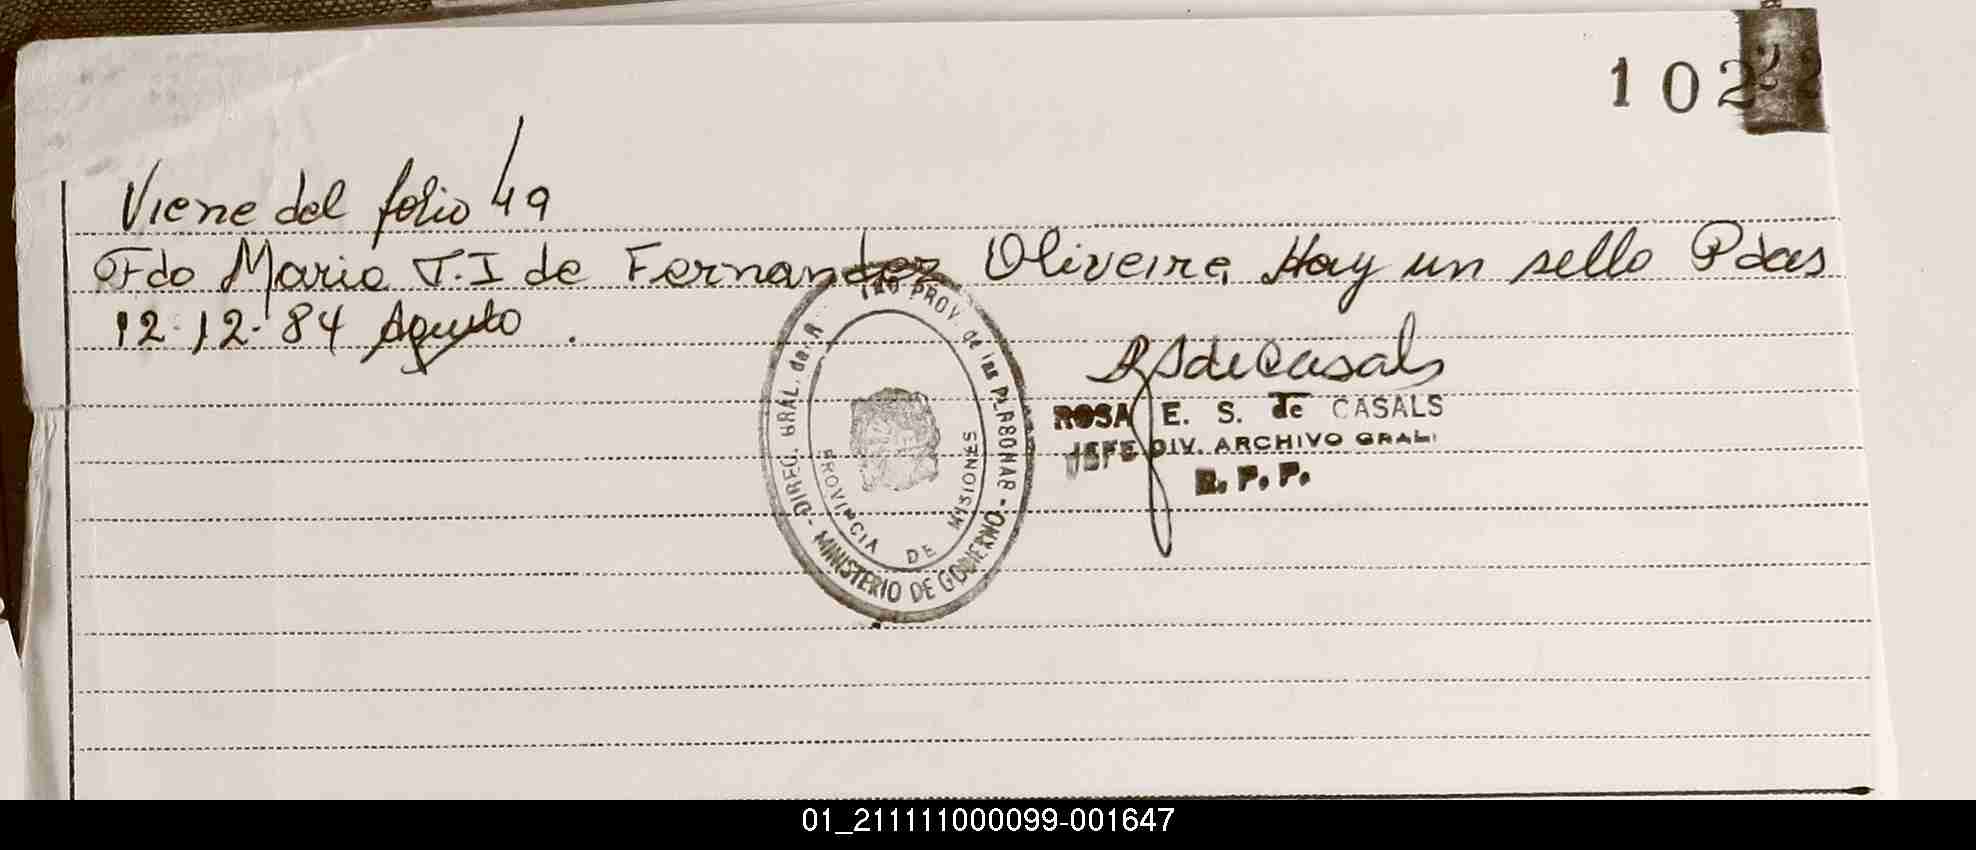 102
Viene del folio 49
Fdo Maria T.I de Fernandez Oliveira, Hay un sello Pdas
12-12-84 Agusto.
RSdeCasals
ROSA E. S. de CASALS
JEFE DIV. ARCHIVO GRAL.
R. P. P.
DIREC. GRAL. del R PROV. de las PERSONAS
PROVINCIA DE MISIONES
- MINISTERIO DE GOBIERNO -
01_211111000099-001647